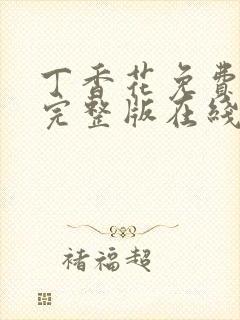 丁香花免费
完整版在线
褚福超